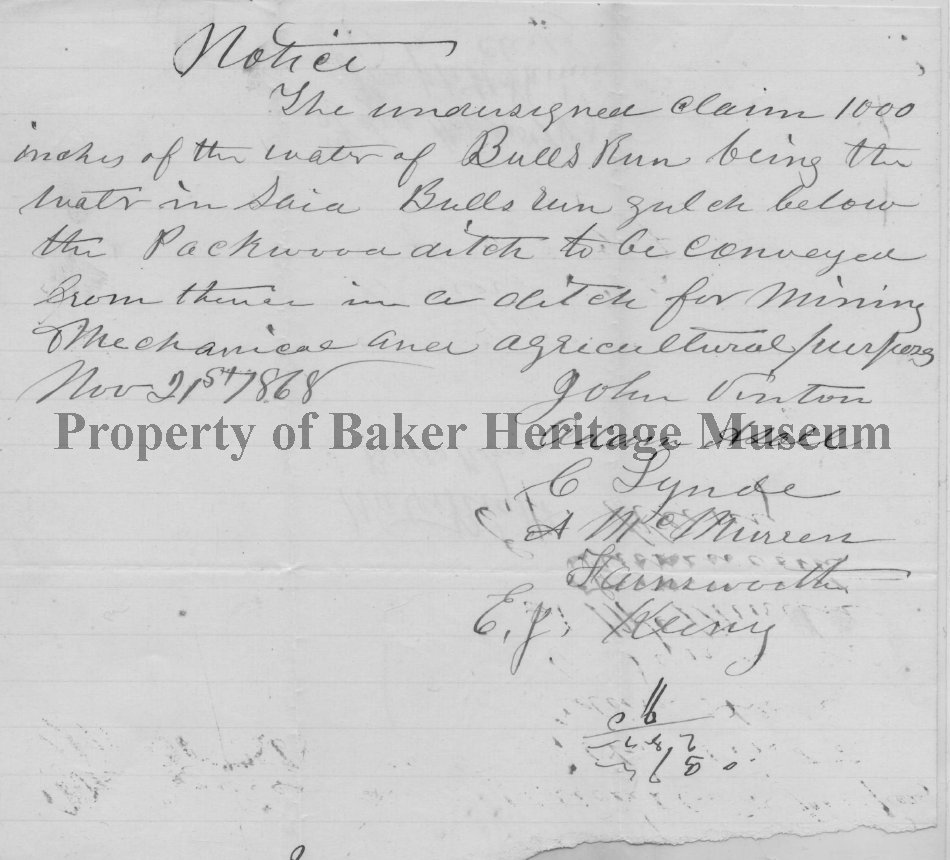 Notice
The undersigned claim 1000
inches of the water of Bulls Run being the
water in said Bulls run gulch below
the Packwood ditch to be conveyed
from thence in a ditch for Mining
Mechanical and agricultural purposes
Nov 21st 1868 John Vinton
Property of Baker Heritage Museum
Adam
C Lynde
A McMurren
Farnsworth
E. J.